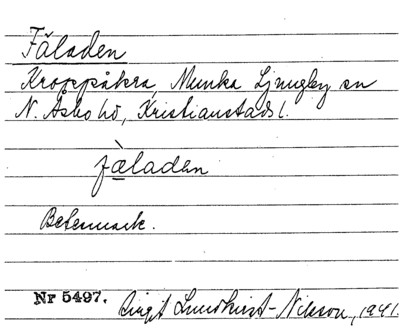 Fäladen
Kroppåkra, Munka Ljungby sn
N. Åsbo hd, Kristianstads l.
fæ̀laden
Betesmark.
Nr 5497. Birgit Lundkvist-Nilsson, 1941.